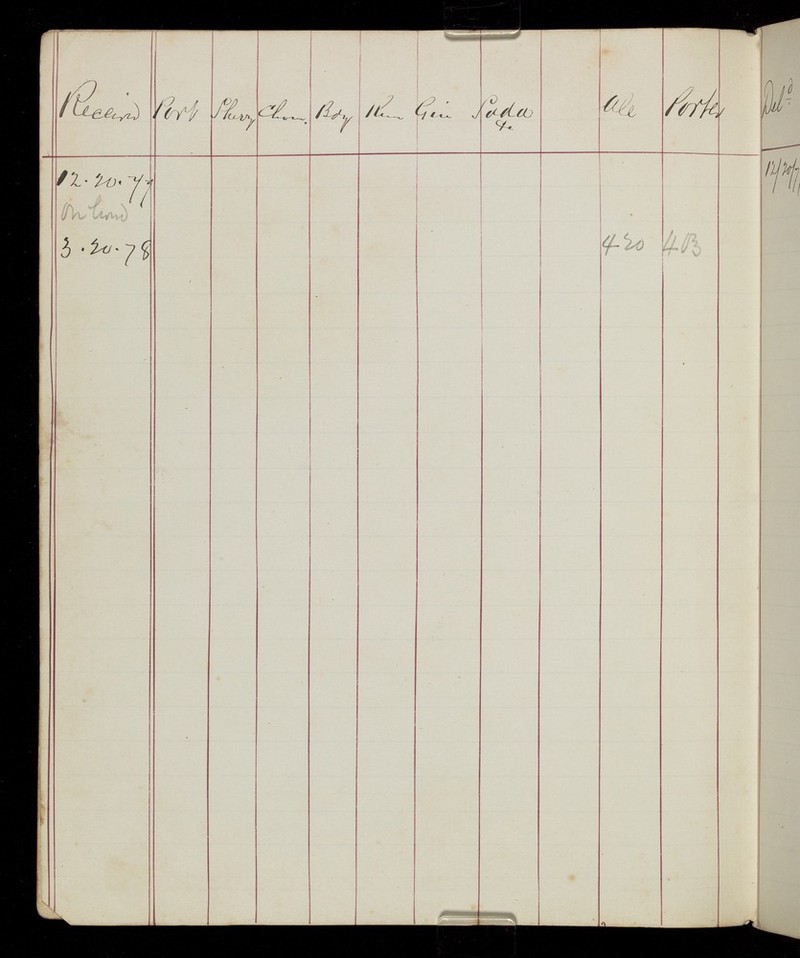 Received Port Sherry Cham. Bdy Rum Gin Soda &c Ale Porter
12.20.77
On hand
3.20.78 420 403
Deld
12/20/7